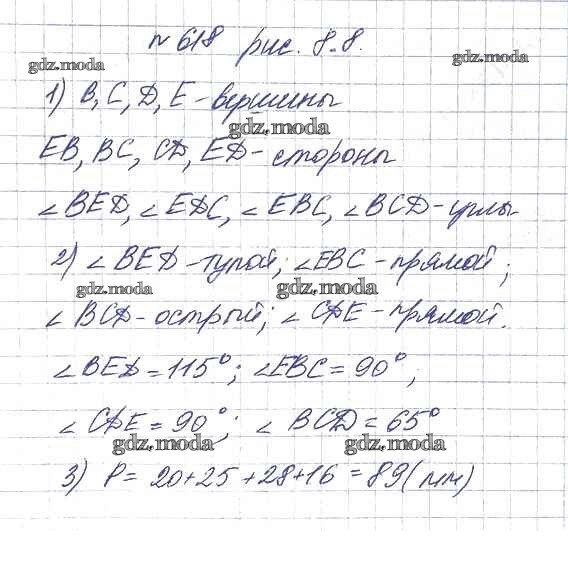 № 618 рис. 8.8.
gdz.moda gdz.moda
1) B, C, D, E - вершины
gdz.moda
EB, BC, CD, ED - стороны
∠BED, ∠EDC, ∠EBC, ∠BCD - углы
2) ∠BED - тупой; ∠EBC - прямой;
gdz.moda gdz.moda
∠BCD - острый; ∠CDE - прямой.
∠BED = 115°; ∠EBC = 90°;
∠CDE = 90°; ∠BCD = 65°
gdz.moda gdz.moda
3) P = 20+25+28+16 = 89 (мм)